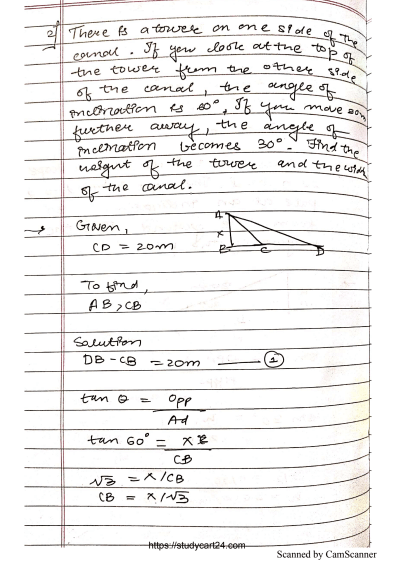 2) There is a tower on one side of the
canal. If you look at the top of
the tower from the other side
of the canal, the angle of
inclination is 60°. If you move 20m
further away, the angle of
inclination becomes 30°. Find the
height of the tower and the widt
of the canal.
→ Given,
CD = 20m
A
X
B C D
To find,
AB, CB
Solution
DB - CB = 20m —— ①
tan θ = Opp
Ad
tan 60° = X
CB
√3 = X/CB
CB = X/√3
https://studycart24.com
Scanned by CamScanner